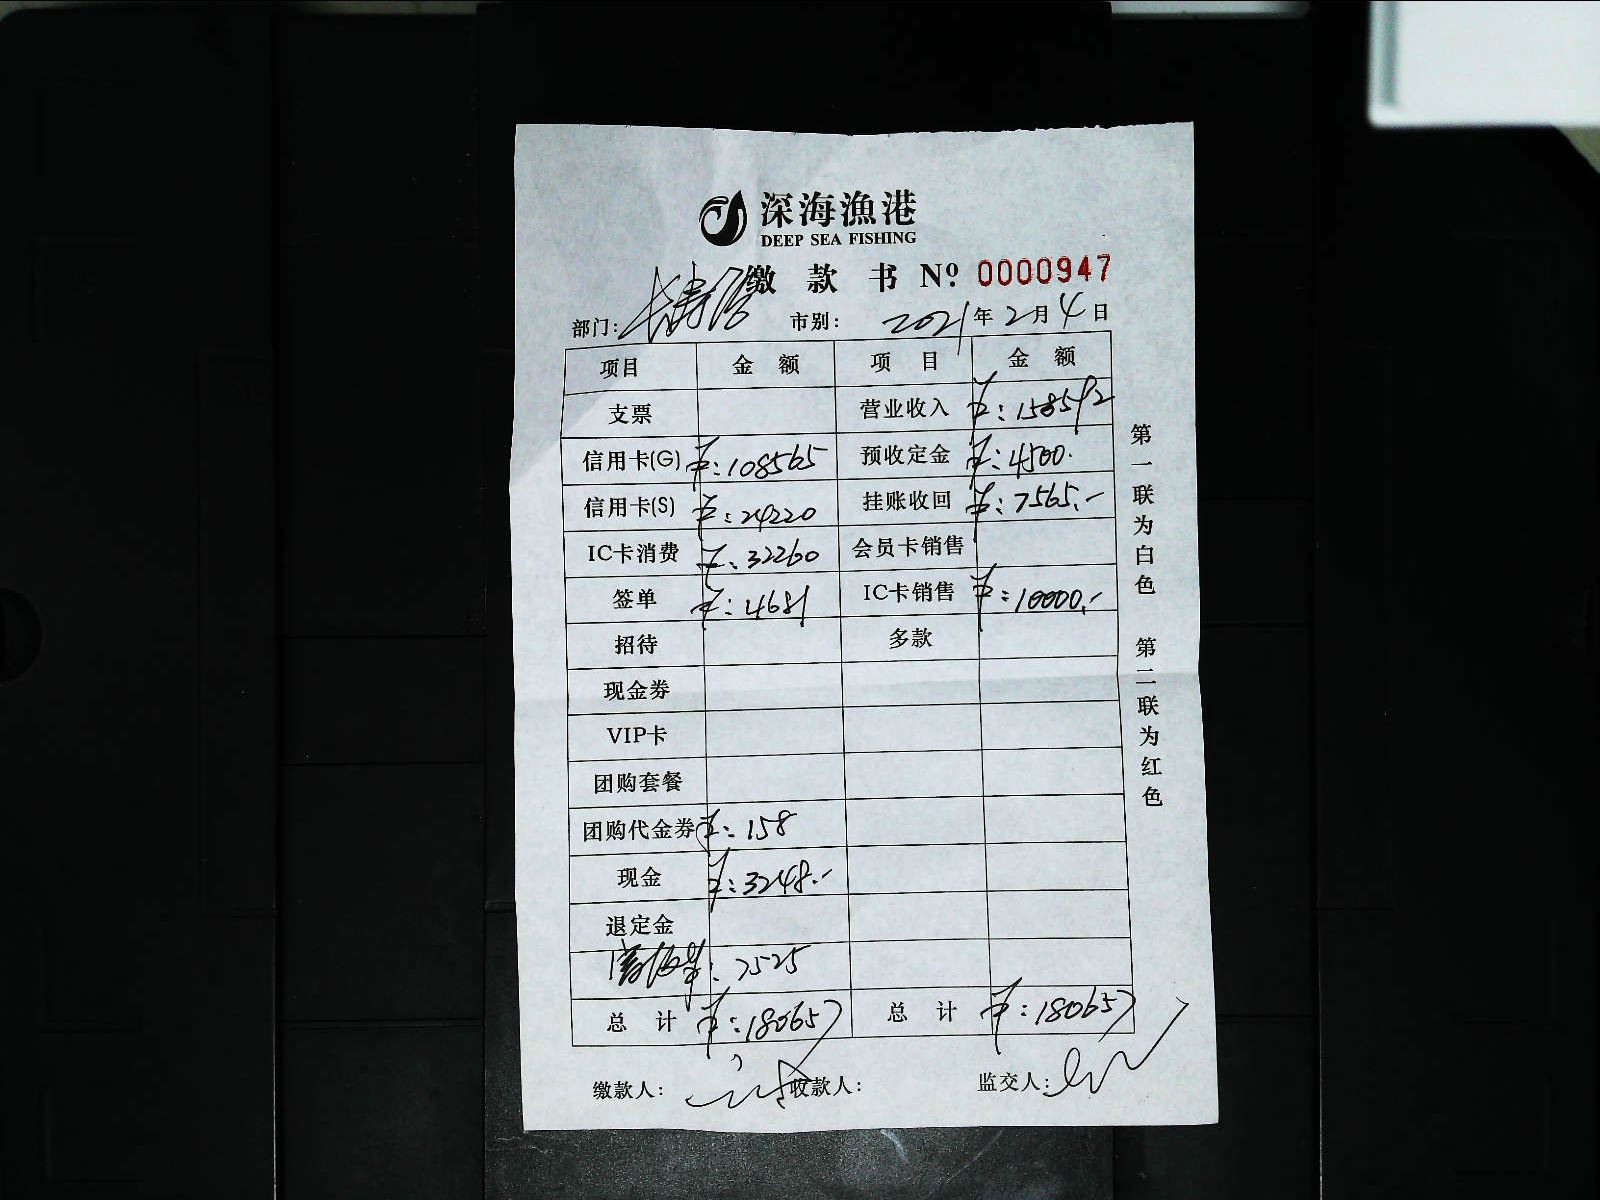 深海漁港
DEEP SEA FISHING
缴款书 Nº: 0000947
部门: 长寿路 市别: 2021年2月4日
项目 金额 项目 金额
支票 营业收入 ¥:158592
信用卡(G) ¥:108565 预收定金 ¥:4500.
信用卡(S) ¥:24220 挂账收回 ¥:7565.-
IC卡消费 ¥:32260 会员卡销售
签单 ¥:4681 IC卡销售 ¥:10000.-
招待 多款
现金券
VIP卡
团购套餐
团购代金券 ¥:158
现金 ¥:3248.-
退定金
:7525
总计 ¥:180657 总计 ¥:180657
缴款人: 收款人: 监交人:
第一联为白色 第二联为红色